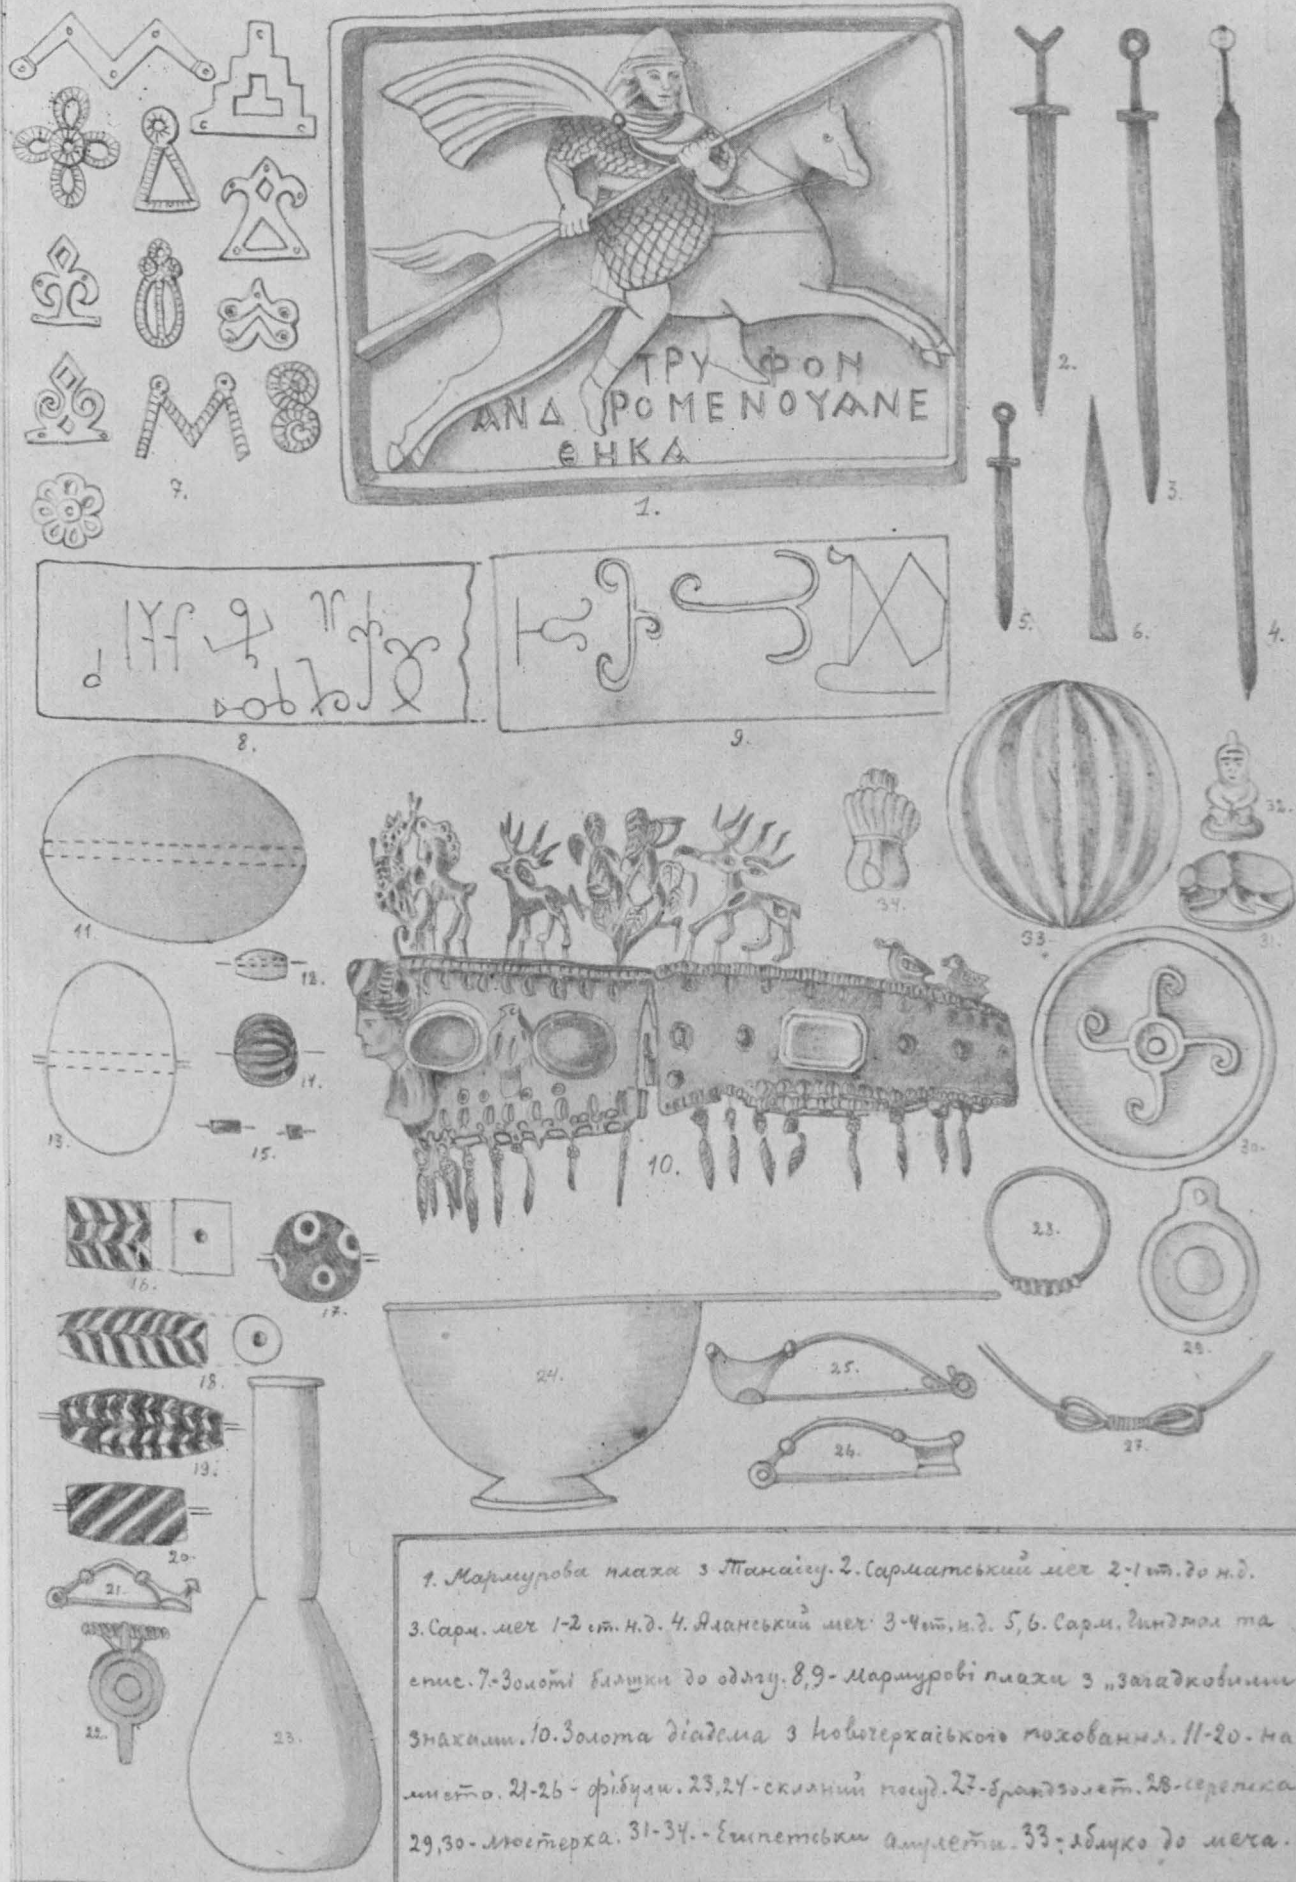 ТРУ ФОN
ΑΝΔ ΡΟΜΕΝΟΥΑΝΕ
ΘΗΚΑ
1.
2.
3.
4.
5.
6.
7.
8.
9.
10.
11.
12.
13.
14.
15.
16.
17.
18.
19.
20.
21.
22.
23.
24.
25.
26.
27.
28.
29.
30.
31.
32.
33.
34.
1. Мармурова плаха з Танаїсу. 2. Сарматський меч 2-1 ст. до н.д.
3. Сарм. меч 1-2 ст. н.д. 4. Аланський меч 3-4 ст. н.д. 5, 6. Сарм. Гинджал та
спис. 7.-Золоті бляшки до одягу. 8,9- Мармурові плахи з „загадковими
знаками. 10. Золота діадема з Новочеркаського поховання. 11-20- на
мисто. 21-26- фібули. 23,24-скляний посуд. 27-брандзолет. 28-сережка
29,30-люстерка. 31-34.-Египетськи амулети. 33-яблуко до меча.